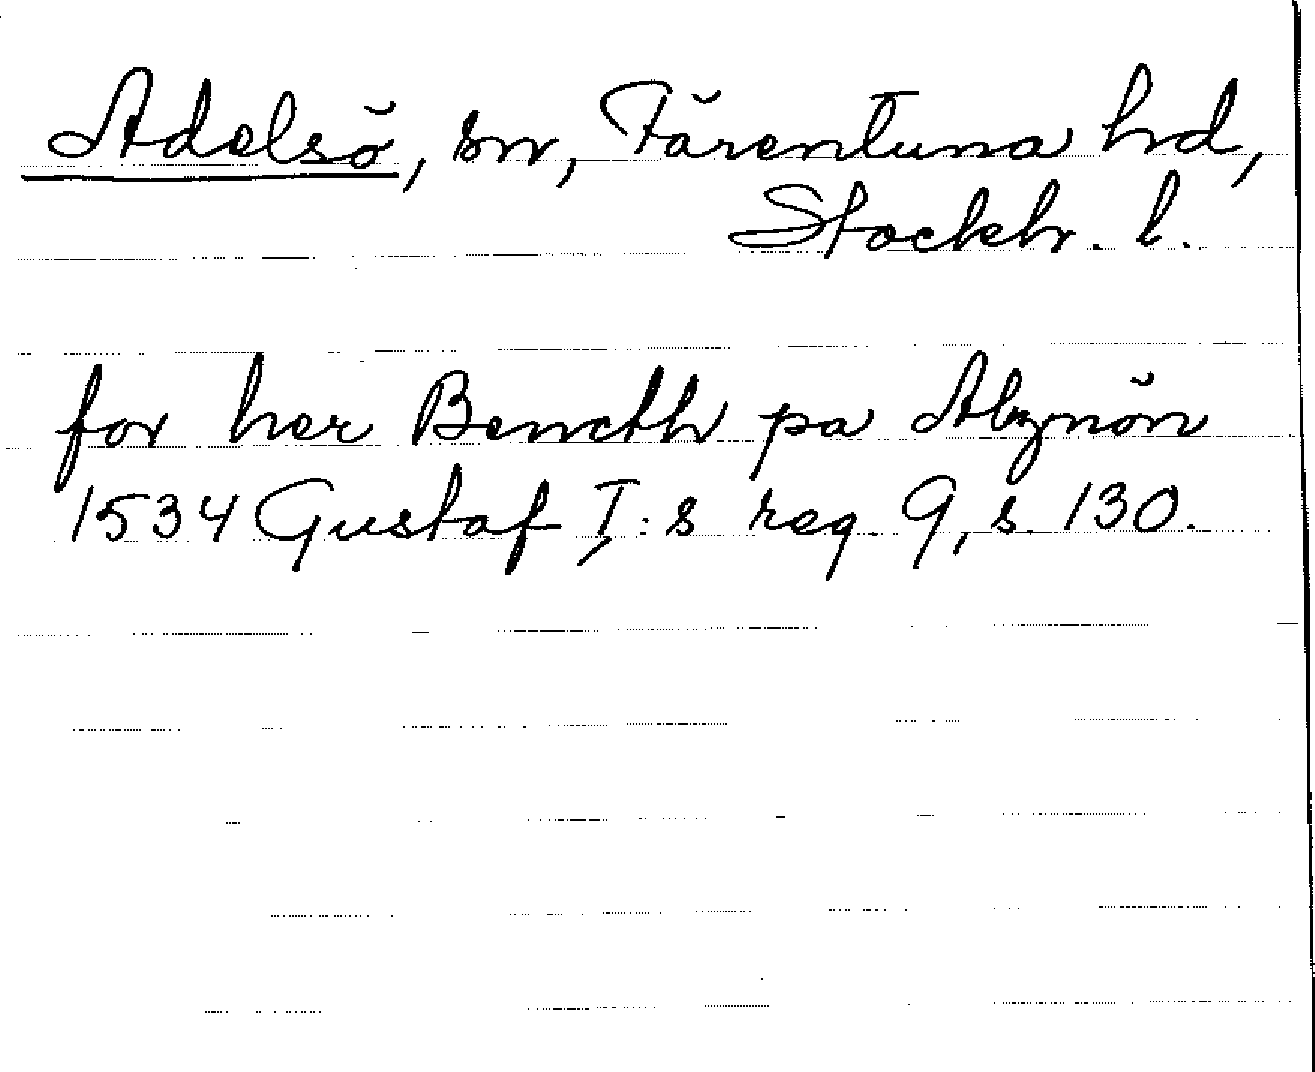 Adelsö, sn, Färentuna hd,
Stockh. l.
for her Bencth pa Alznön
1534 Gustaf I:s reg. 9, s. 130.